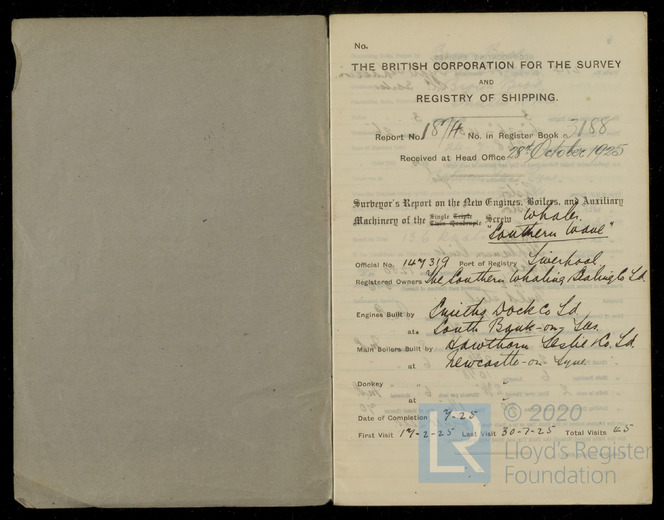 No.
THE BRITISH CORPORATION FOR THE SURVEY
AND
REGISTRY OF SHIPPING.
Report No. 1874 No. in Register Book 3188
Received at Head Office 28th October 1925
Surveyor's Report on the New Engines, Boilers, and Auxiliary
Machinery of the Single Triple Twin Quadruple Screw Whaler
"Southern Wave"
Official No. 147319 Port of Registry Liverpool
Registered Owners The Southern Whaling & Sealing Co Ld.
Engines Built by Smiths Dock Co Ld.
at South Bank-on-Tees.
Main Boilers Built by Hawthorn Leslie & Co. Ld.
at Newcastle-on-Tyne.
Donkey " "
at "
Date of Completion 7-25
First Visit 17-2-25 Last Visit 30-7-25 Total Visits 45
LR
© 2020
Lloyd's Register
Foundation